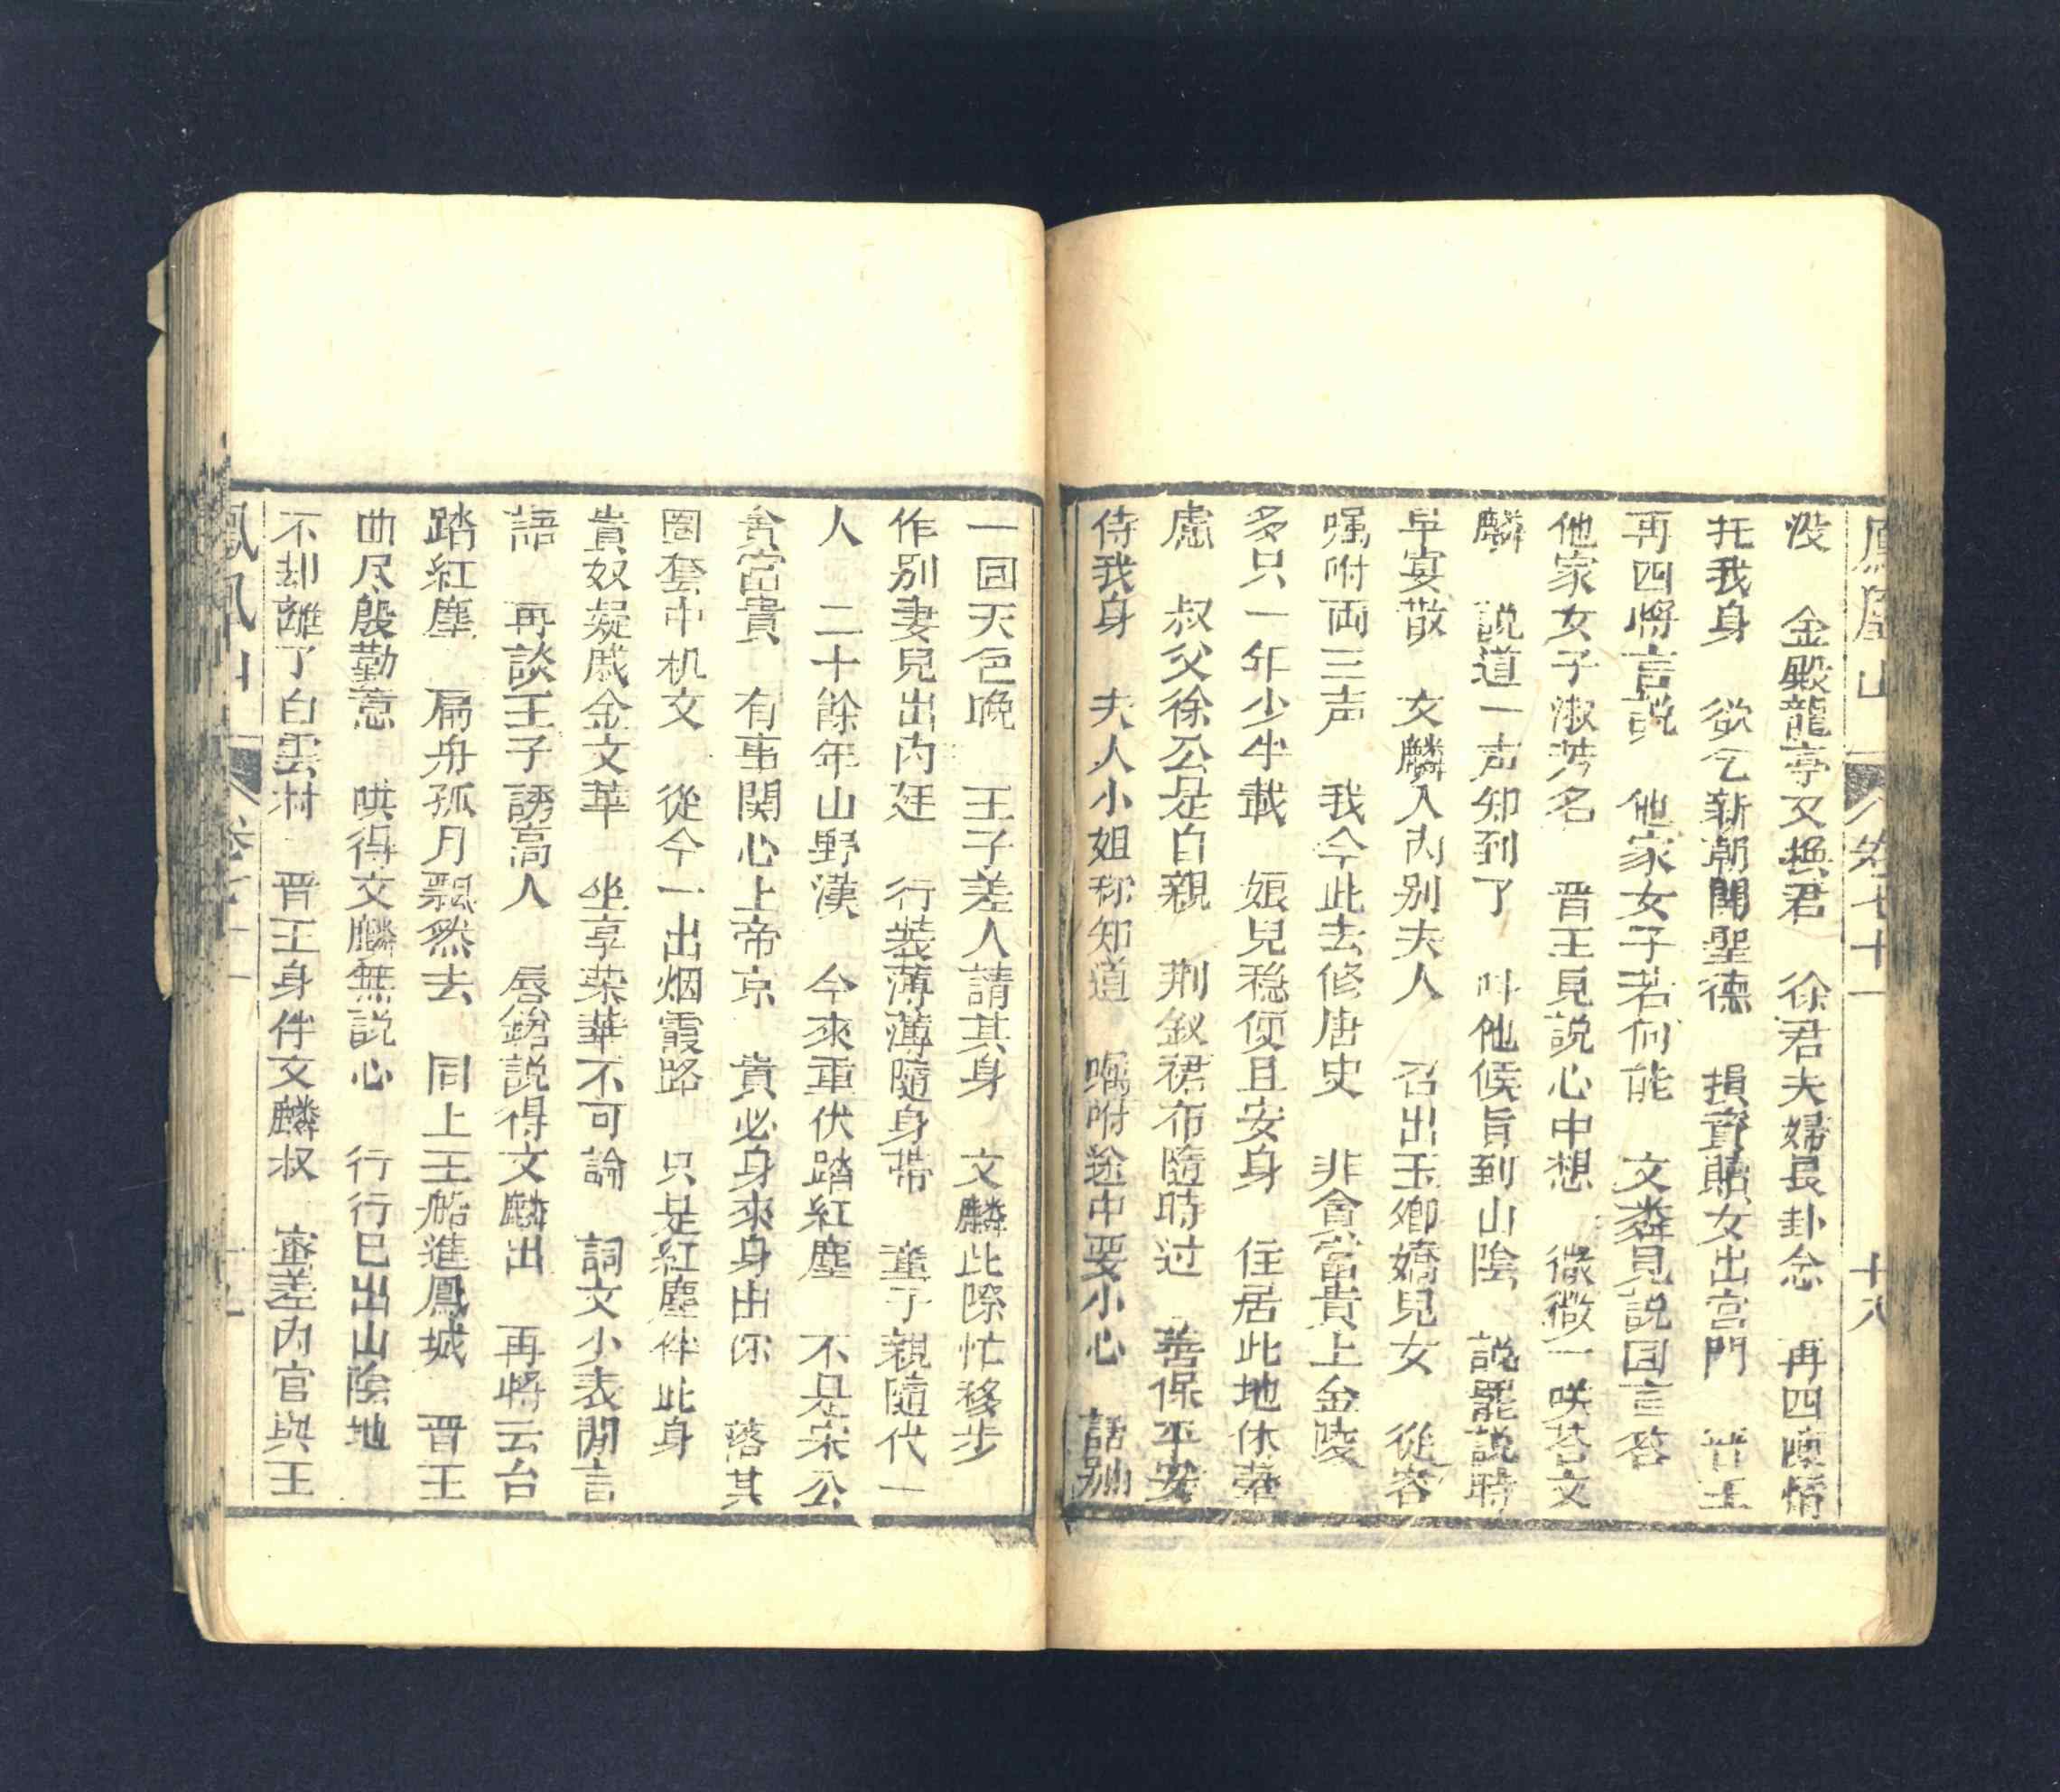 鳳凰山 卷七十一 十八
没 金殿龍亭又換君 徐君夫婦長卦念 再四陳情
托我身 欲乞新朝開聖德 損資賠女出宮門 晋王
再四將言説 他家女子若何能 文麟見説回言答
他家女子淑芳名 晋王見説心中想 微微一咲荅文
麟 説道一声知到了 叫他候旨到山陰 説罷説時
早宴散 文麟入内别夫人 召出玉卿嬌兒女 從容
嘱咐両三声 我今此去修唐史 非貪富貴上金陵
多只一年少半載 娘兒稳便且安身 住居此地休
慮 叔父徐公是自親 荆釵裙布隨時过 善保平安
侍我身 夫人小姐称知道 嘱咐途中要小心 話别
一回天色晚 王子差人請其身 文麟此際忙移步
作别妻兒出内廷 行裝薄薄隨身帶 童子親隨代一
人 二十餘年山野漢 今來重伏踏紅塵 不是宋公
貪富貴 有事関心上帝京 貴必身來身出 落其
圈套中机文 從今一出烟霞路 只是紅塵伴此身
貴奴疑戚金文華 坐享荣華不可論 詞文少表閒言
語 再談王子誘高人 唇鎗説得文麟出 再將云台
踏紅塵 扁舟孤月飄然去 同上王船進鳳城 晋王
曲尽殷勤意 哄得文麟無説心 行行已出山陰地
不却離了白雲村 晋王身伴文麟叔 密差内官與王
鳳凰山 卷七十一